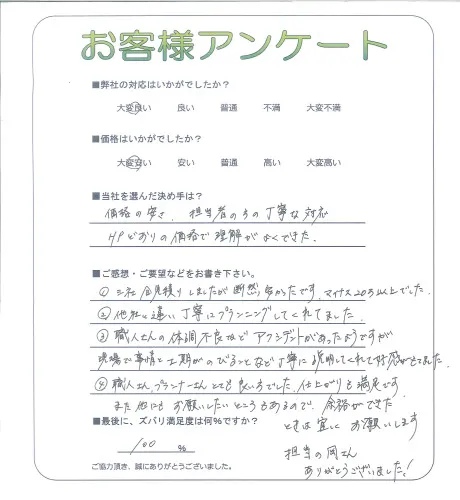 お客様アンケート
■弊社の対応はいかがでしたか？
大変良い 良い 普通 不満 大変不満
■価格はいかがでしたか？
大変安い 安い 普通 高い 大変高い
■当社を選んだ決め手は？
価格の安さ、担当者の方の丁寧な対応
HPどおりの価格で理解がよくできた。
■ご感想・ご要望などをお書き下さい。
① 三社見積りしましたが断然安かったです。マイナス20万以上でした。
② 他社と違い丁寧にプランニングしてくれてました。
③ 職人さんの体調不良などアクシデントがあったようですが
現場で事情と工期がのびることなど丁寧に説明してくれて
④ 職人さん、プランナーさんとても良い方でした。仕上がりも満足です
また他にもお願いしたいところもあるので、余裕ができた
ときは宜しくお願いします
■最後に、ズバリ満足度は何％ですか？
100 %
担当の岡さん
ありがとうございました！
ご協力頂き、誠にありがとうございました。